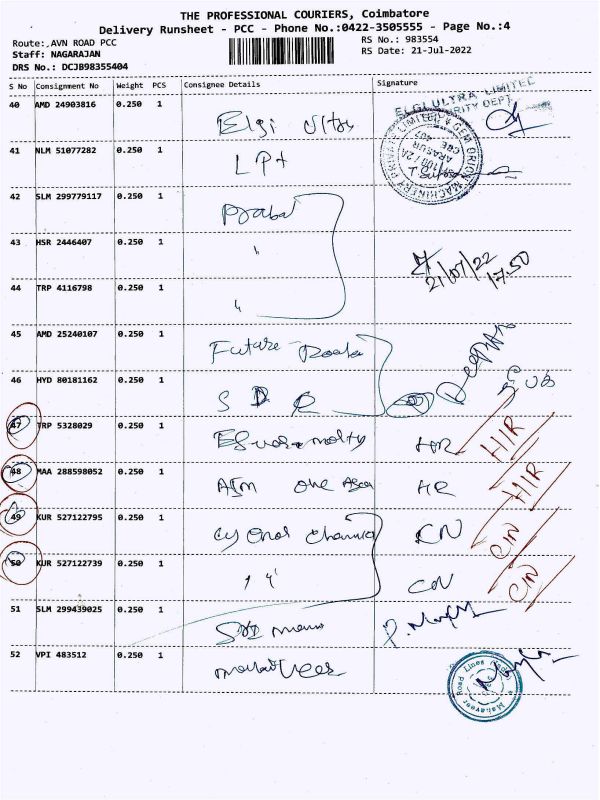 THE PROFESSIONAL COURIERS, Coimbatore
Delivery Runsheet - PCC - Phone No.:0422-3505555 - Page No.:4
Route:,AVN ROAD PCC
RS No.: 983554
Staff: NAGARAJAN
RS Date: 21-Jul-2022
DRS No.: DCJB98355404
S No Consignment No Weight PCS Consignee Details Signature
40 AMD 24903816 0.250 1 Elgi Ultra
ELGI ULTRA LIMITED
SECURITY DEPT
41 NLM 51077282 0.250 1 LPt
42 SLM 299779117 0.250 1 Praba
43 HSR 2446407 0.250 1 "
21/07/22
17.50
44 TRP 4116798 0.250 1 "
45 AMD 25240107 0.250 1 Future
46 HYD 80181162 0.250 1 S D R
47 TRP 5328029 0.250 1 HR HIR
48 MAA 288598052 0.250 1 one HR HIR
49 KUR 527122795 0.250 1 CN CIN
50 KUR 527122739 0.250 1 " CN CIN
51 SLM 299439025 0.250 1
52 VPI 483512 0.250 1
Mahaveer Road Lines